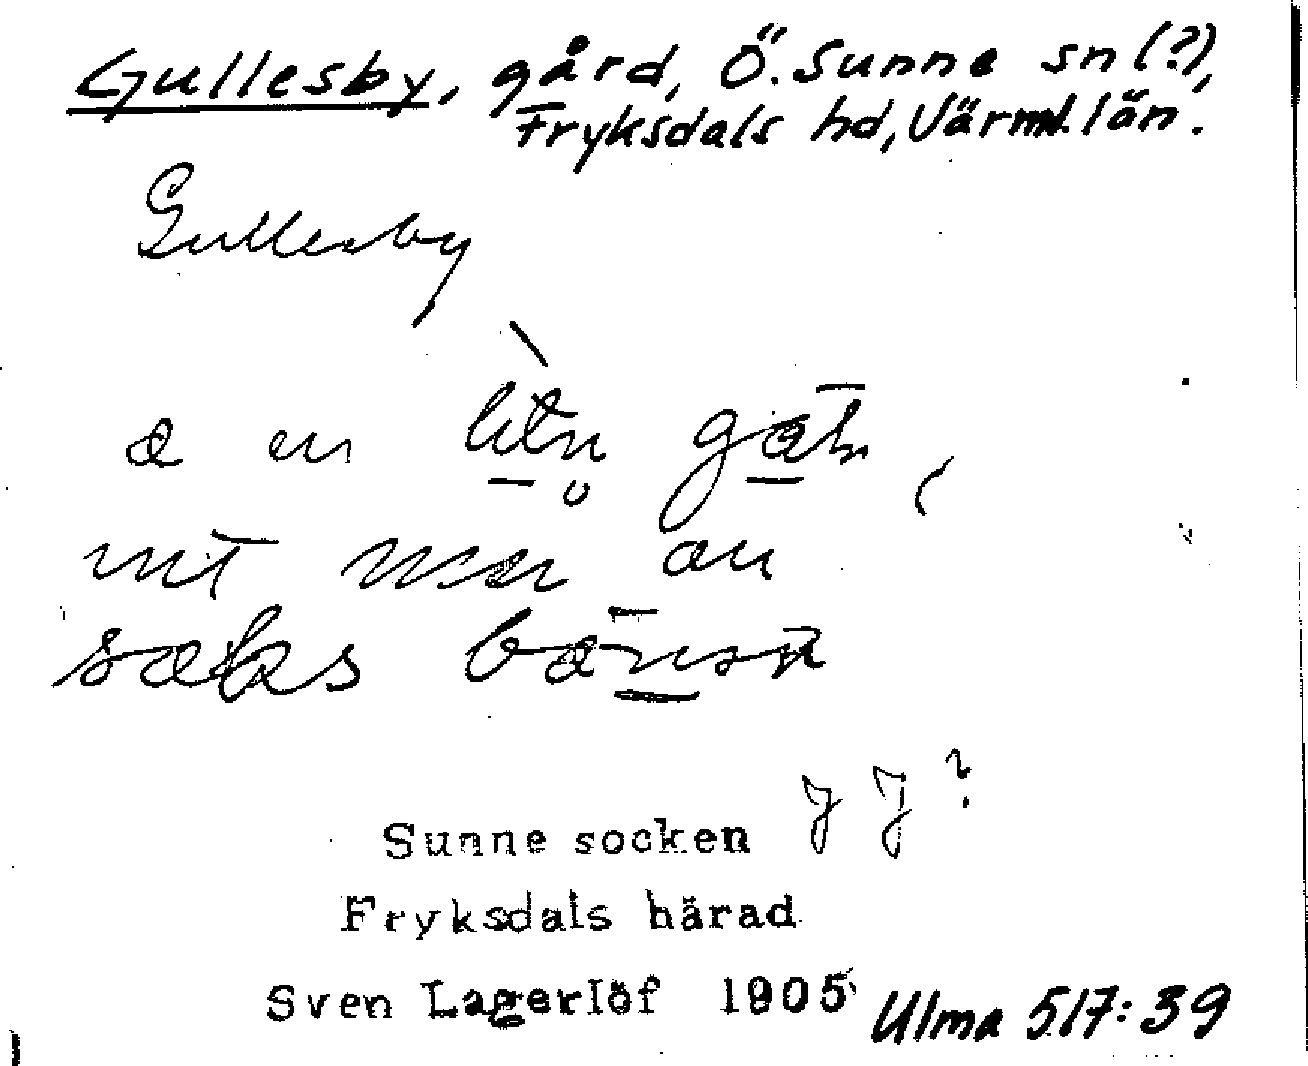 Gullesby, gård, Ö. Sunne sn (?),
Fryksdals hd, Värml. län.
Gullesby
a en litn
mer an
saks
J J ?
Sunne socken
Fryksdals härad
Sven Lagerlöf 1905 Ulma 517:39